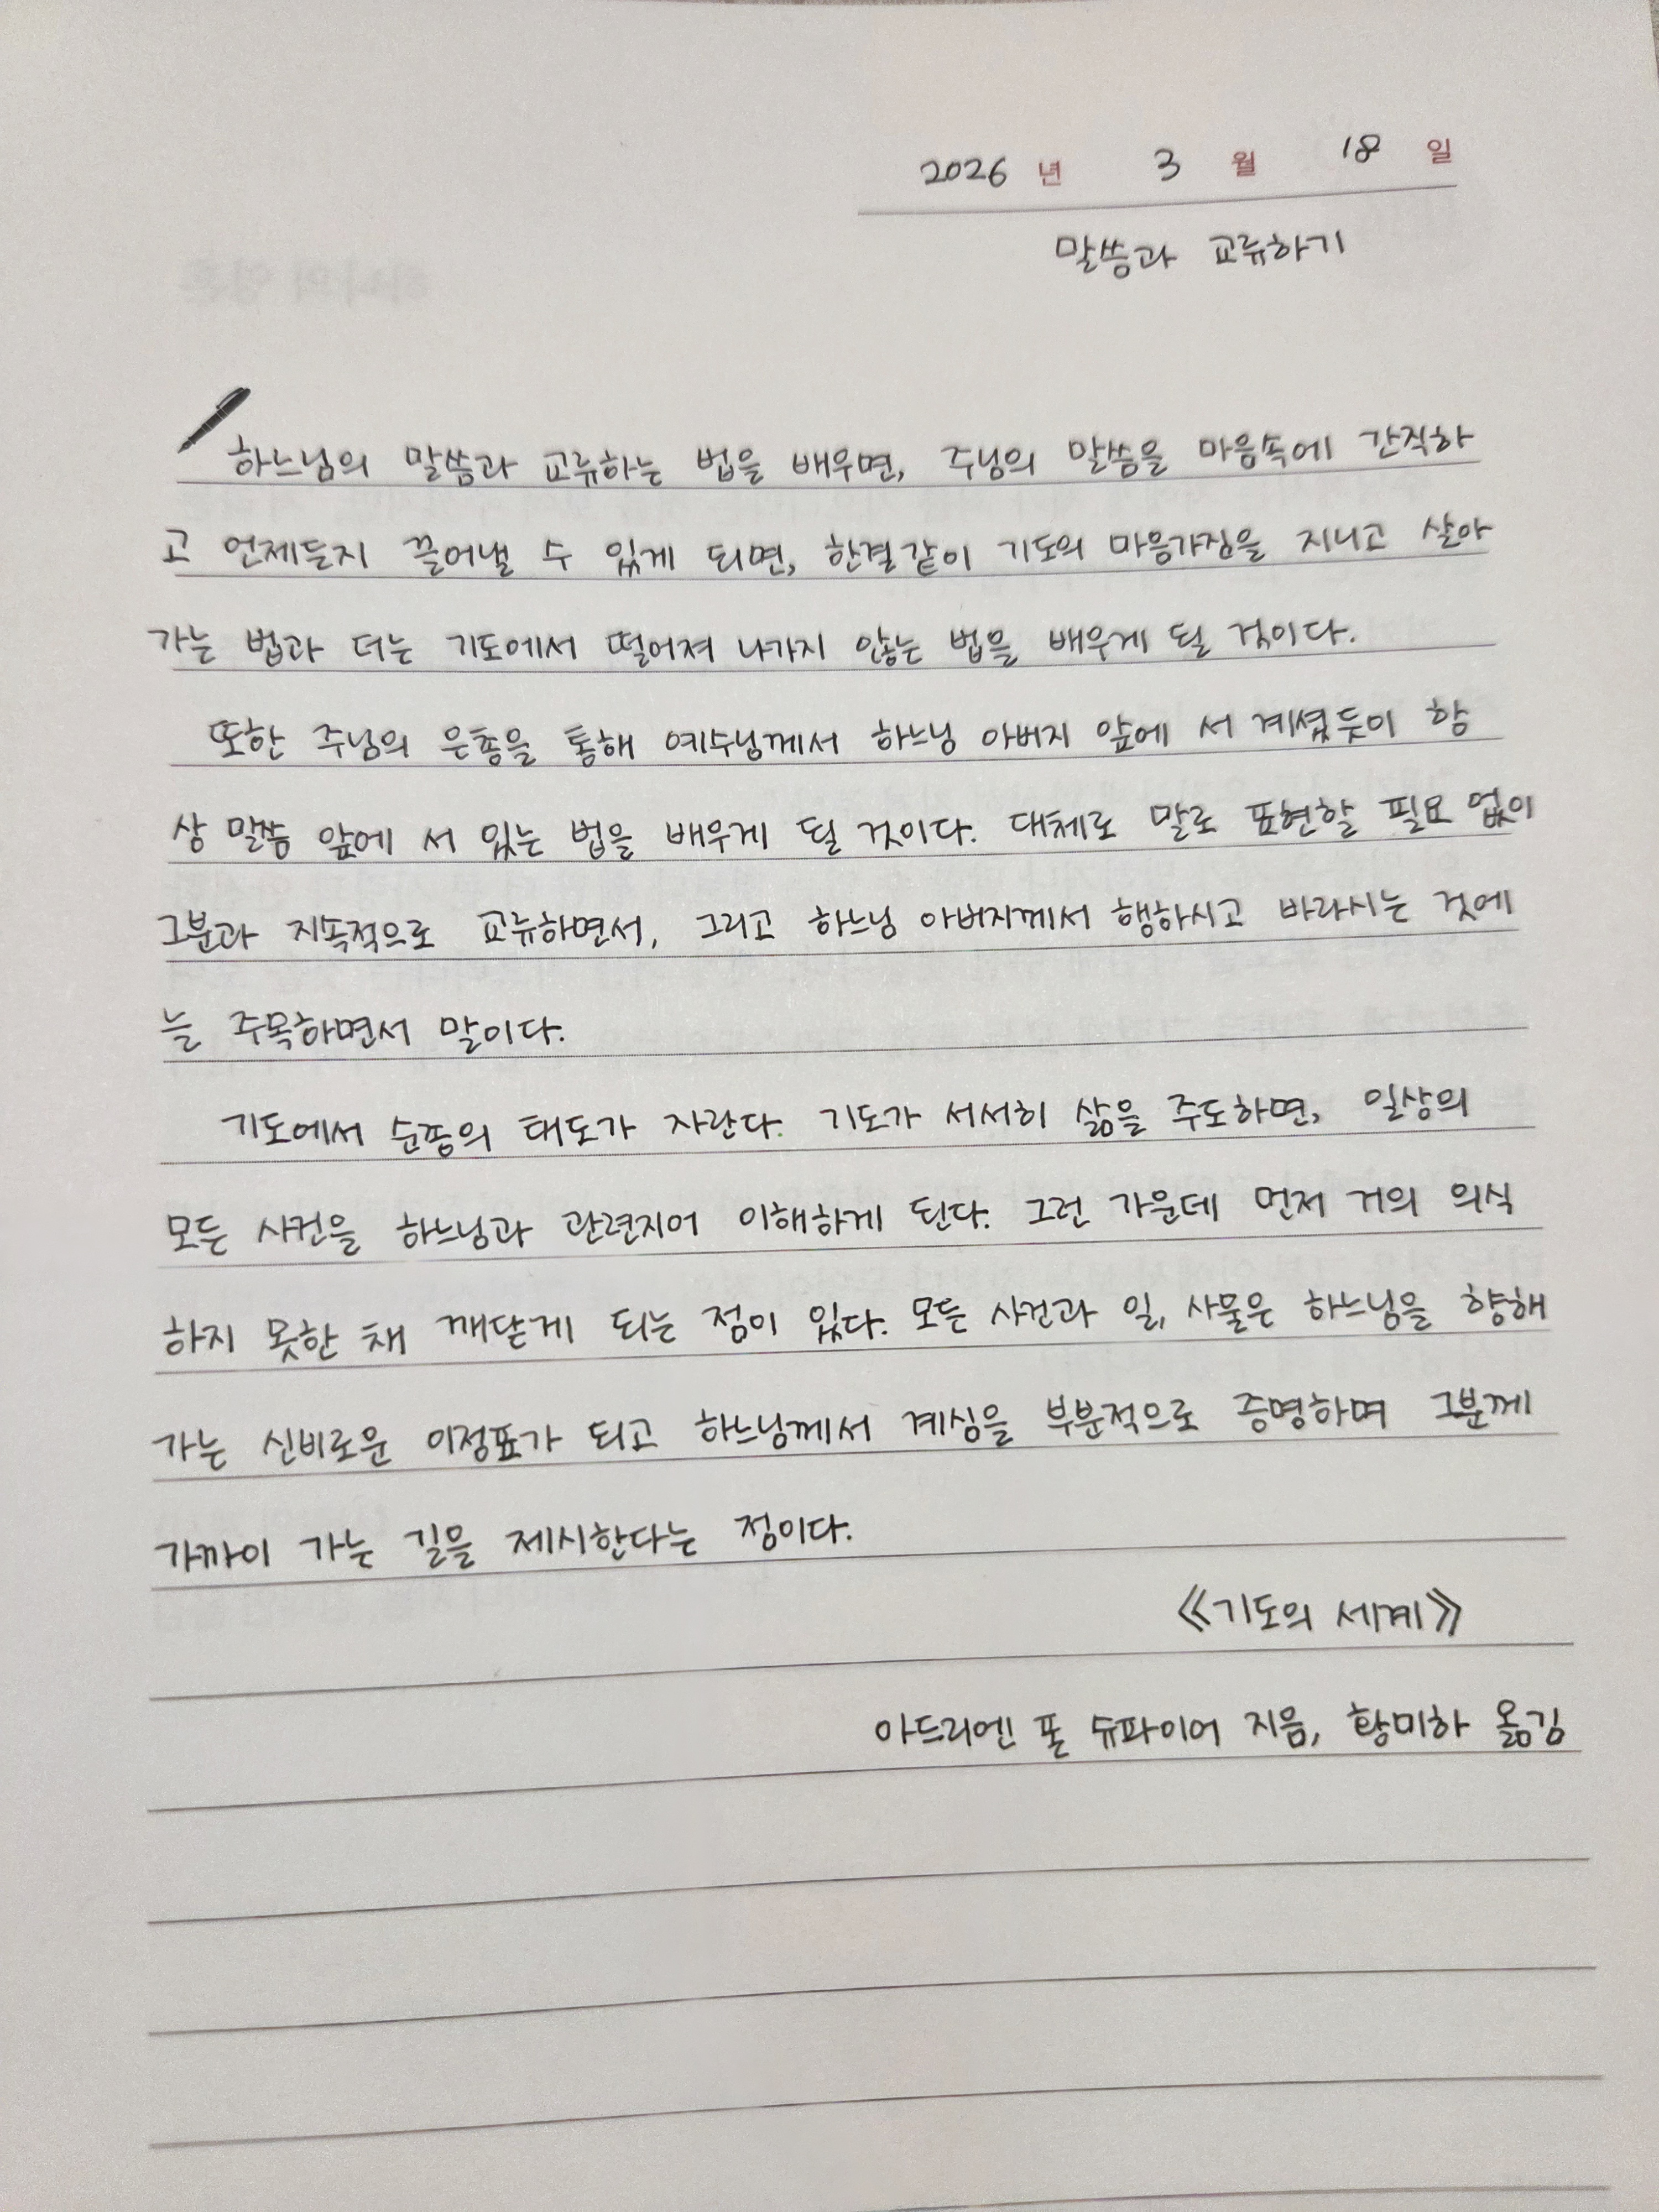 2026 년 3 월 18 일
말씀과 교류하기
하느님의 말씀과 교류하는 법을 배우면, 주님의 말씀을 마음속에 간직하
고 언제든지 끌어낼 수 있게 되면, 한결같이 기도의 마음가짐을 지니고 살아
가는 법과 더는 기도에서 떨어져 나가지 않는 법을 배우게 될 것이다.
또한 주님의 은총을 통해 예수님께서 하느님 아버지 앞에 서 계셨듯이 항
상 말씀 앞에 서 있는 법을 배우게 될 것이다. 대체로 말로 표현할 필요 없이
그분과 지속적으로 교류하면서, 그리고 하느님 아버지께서 행하시고 바라시는 것에
늘 주목하면서 말이다.
기도에서 순종의 태도가 자란다. 기도가 서서히 삶을 주도하면, 일상의
모든 사건을 하느님과 관련지어 이해하게 된다. 그런 가운데 먼저 거의 의식
하지 못한 채 깨닫게 되는 점이 있다. 모든 사건과 일, 사물은 하느님을 향해
가는 신비로운 이정표가 되고 하느님께서 계심을 부분적으로 증명하며 그분께
가까이 가는 길을 제시한다는 점이다.
《기도의 세계》
아드리엔 폰 슈파이어 지음, 황미하 옮김